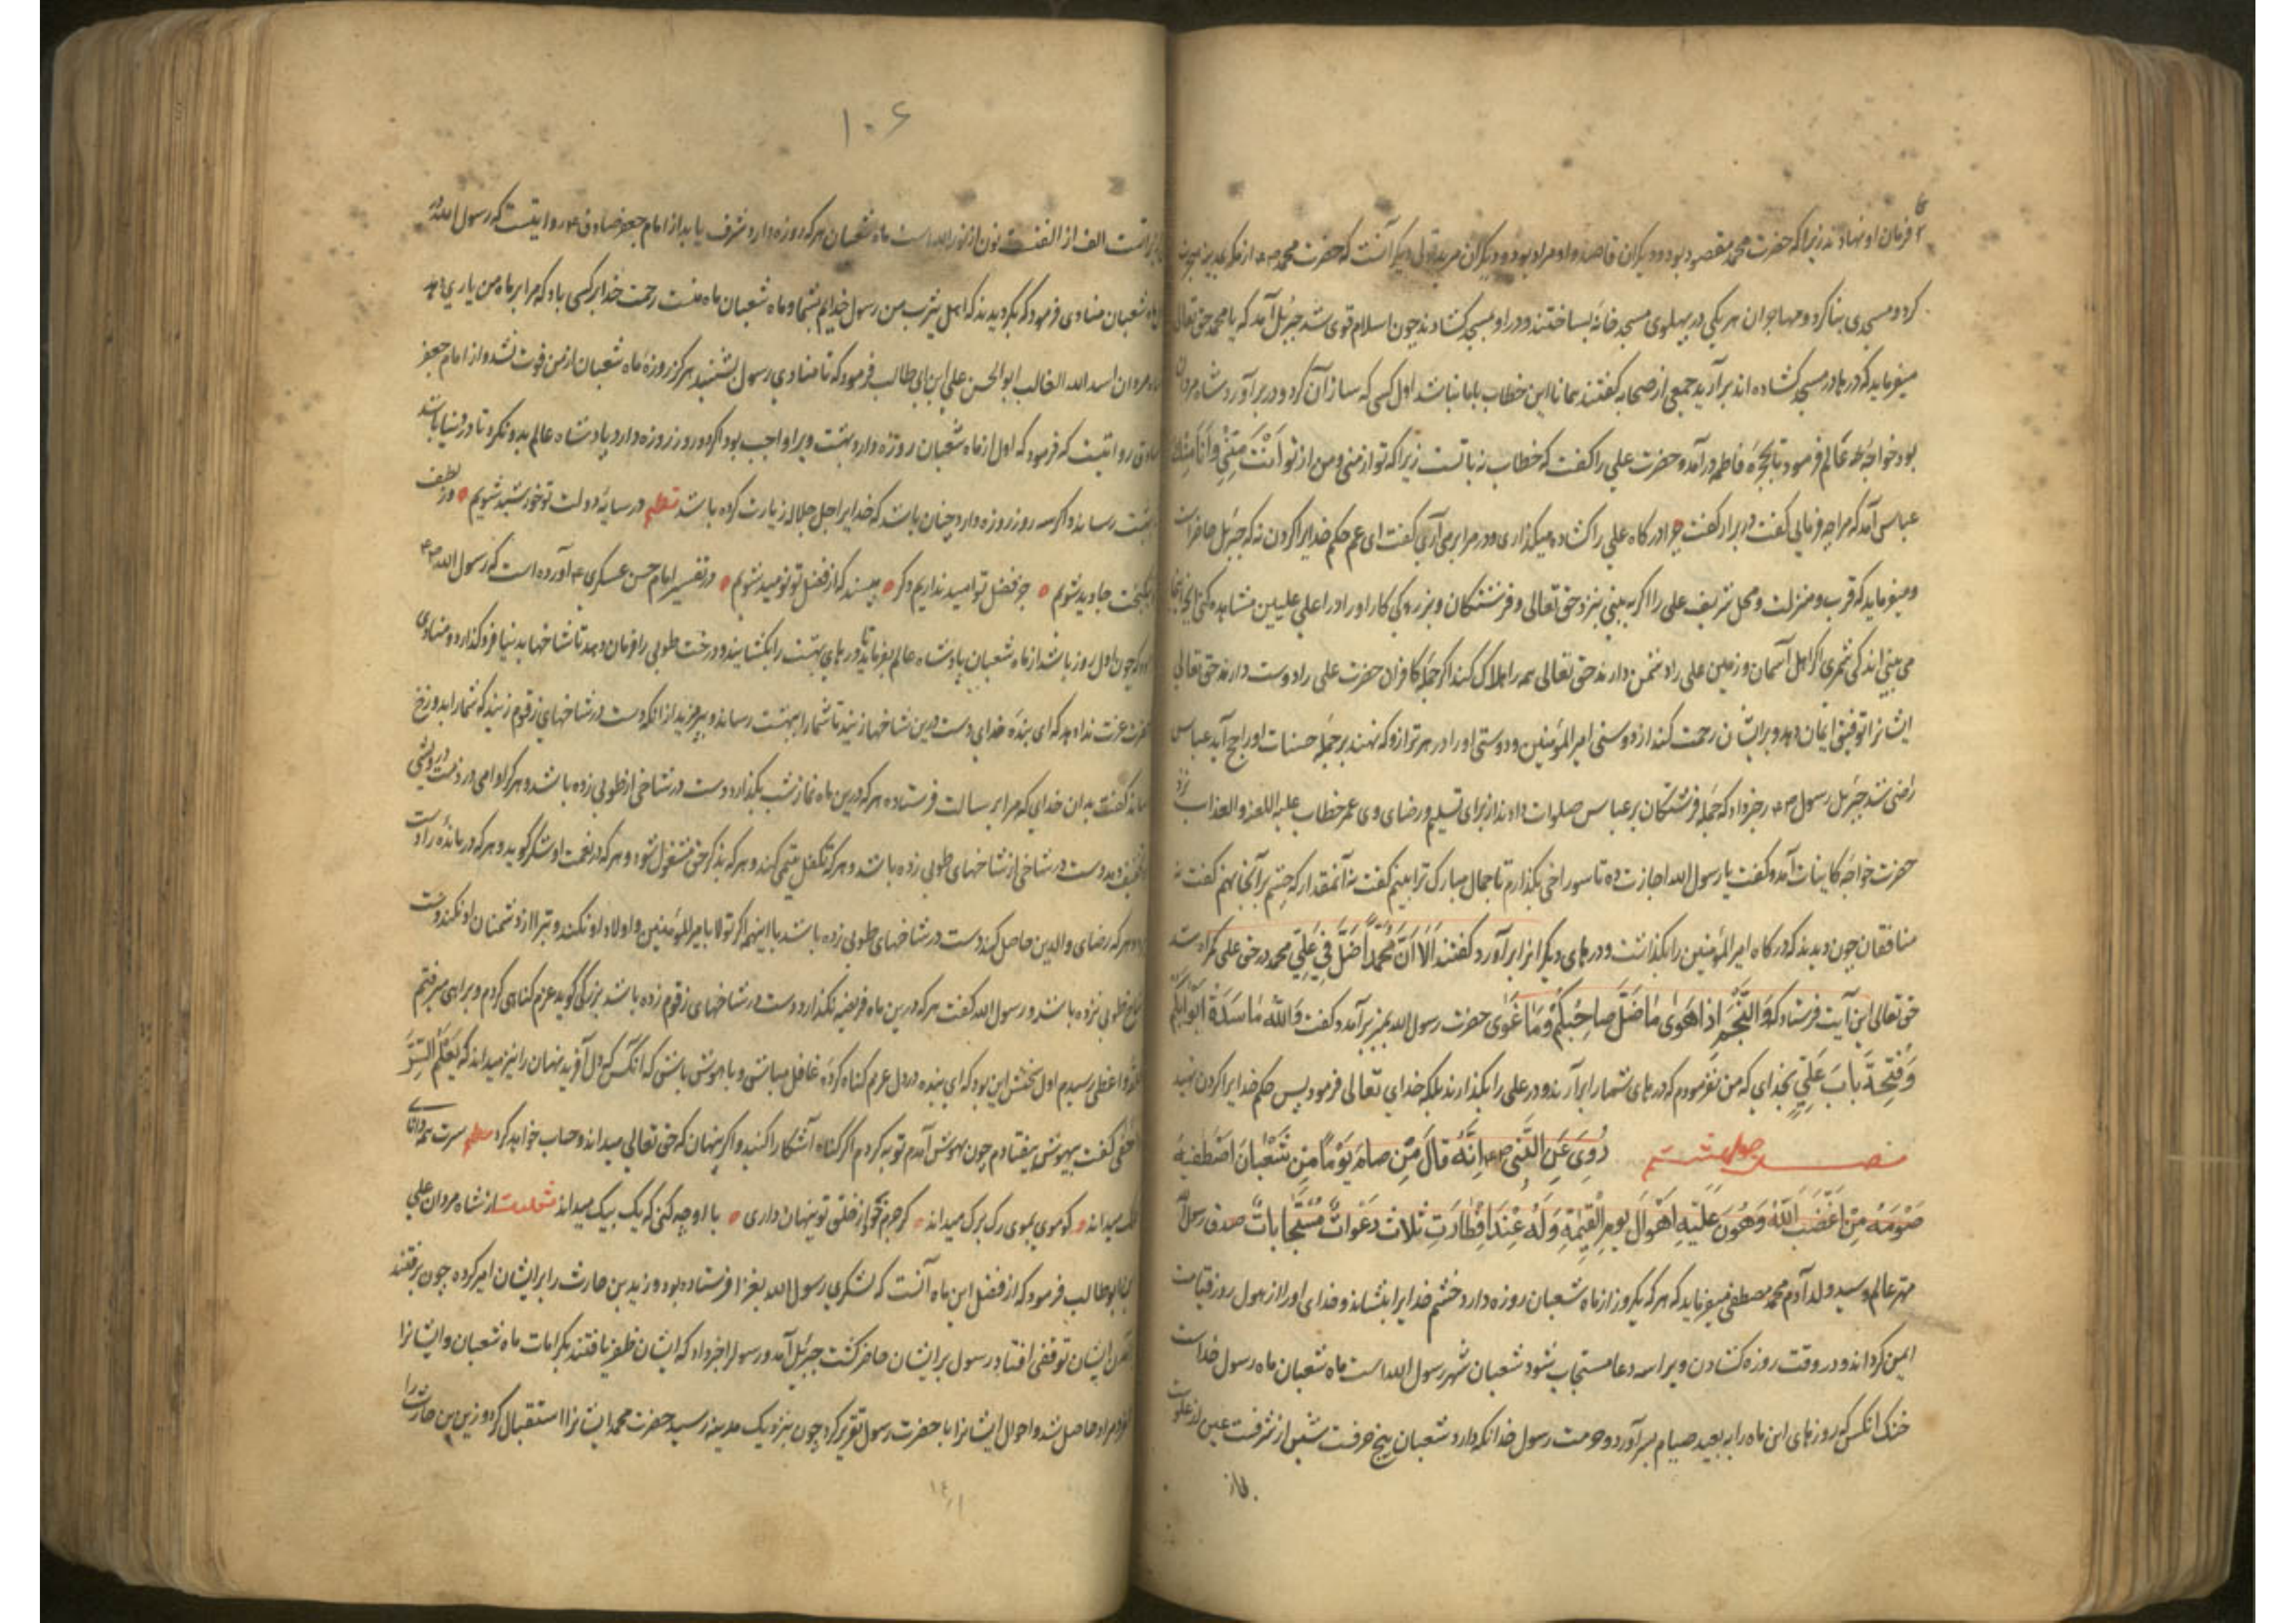 فرمان او نهادند زیرا که حضرت محمد مقصود بود و دیگران قاصد و او مراد بود و دیگران مرید قولی دیگر آنست که حضرت محمد از مکه بمدینه هجرت
کرد و مسجدی بنا کرد و مهاجران هر یکی در پهلوی مسجد خانه بساختند و در او مسجد کشادند چون اسلام قوی شد جبرئیل آمد که یا محمد حق تعالی
میفرماید که درها در مسجد کشاده اند برآرید جمعی از صحابه گفتند همانا این خطاب بابا نباشد اول کسی که ساز آن کرد و در برآورد شاه مردان
بود خواجه عالم فرمود تا بحجره فاطمه درآمد و حضرت علی را گفت که خطاب نه باتست زیرا که تو از منی و من از تو اَنْتَ مِنّی وَاَنَا مِنْكَ
عباس آمد که مرا چه فرمائی گفت در برآر گفت چرا درگاه علی را کشاده میگذاری و در مرا برمی آری گفت ای عم حکم خدایرا کردن نه که جبرئیل حاضر است
و میفرماید که قرب و منزلت و محل شریف علی را اگر به بینی بنزد حق تعالی و فرشتگان و بزرگی کار او را در اعلی علیین مشاهده کنی
می بینی اندکی شمری اگر اهل آسمان و زمین علی را دشمن دارند حق تعالی همه را هلاک کند اگر جمله کافران حضرت علی را دوست دارند حق تعالی
ایشانرا توفیق ایمان دهد و بر ایشان رحمت کند از دوستی امیرالمؤمنین و دوستی او را در هر ترازو که نهند بر جمله حسنات او راجح آید عباس
راضی شد جبرئیل رسول را خبر داد که جمله فرشتگان بر عباس صلوات دادند از برای تسلیم و رضای وی عمر خطاب علیه اللعنه والعذاب نزد
حضرت خواجه کاینات آمد و گفت یا رسول الله اجازت ده تا سوراخی بگذارم تا جمال مبارک ترا بینم گفت نه آنمقدار که چشم بر آنجا نهم گفت نه
منافقان چون دیدند که درگاه امیرالمؤمنین را بگذاشت و درهای دیگرانرا برآورد گفتند اَلا اَنَّ مُحَمَّداً ضَلَّ فی عَلِیٍّ محمد در حق علی گمراه شد
حق تعالی این آیت فرستاد که وَالنَّجْمِ اِذا هَوی ما ضَلَّ صاحِبُکُمْ وَما غَوی حضرت رسول الله بمنبر برآمد و گفت وَاللّهِ ما سَدَدْتُ اَبْوابَکُمْ
وَفَتَحْتُ بابَ عَلِیٍّ بخدای که من نفرمودم که درهای شمارا برآرند و در علی را بگذارند بلکه خدای تعالی فرمود پس حکم خدایرا گردن نهید
رُوِیَ عَنِ النَّبِی اِنَّهُ قالَ مَنْ صامَ یَوْماً مِنْ شَعْبانَ
صَوْمُهُ مِنْ غَضَبِ اللّهِ وَهُوِّنَ عَلَیْهِ اَهْوالُ یَوْمِ الْقِیمَةِ وَلَهُ عِنْدَ اِفْطارِهِ ثَلاثُ دَعَواتٍ مُسْتَجاباتٍ صدق رسول
مهتر عالم و سید ولد آدم محمد مصطفی میفرماید که هر که یکروز از ماه شعبان روزه دارد خشم خدایرا بنشاند و خدای او را از هول روز قیامت
ایمن گرداند و در وقت روزه کشادن ویرا سه دعا مستجاب شود شعبان شهر رسول الله است ماه شعبان ماه رسول خداست
خنک آنکس که روزهای این ماه را به صیام بسر آورد و حرمت رسول خدا نگه دارد شعبان پنج حرفست شین از شرفست عین از علوست
۱۰۶
الف از الفت نون از نور الله است ماه شعبان هر که روزه دارد شرف یابد از امام جعفر صادق روایتست که رسول الله در
شعبان منادی فرمود که بگردیدند که اهل یثرب من رسول خدایم بشما و ماه شعبان ماه منست رحمت خدا بر کسی باد که مرا بر ماه من یاری دهد
مردان اسد الله الغالب ابوالحسن علی ابن ابی طالب فرمود که تا منادی رسول بشنیدم هرگز روزه ماه شعبان از من فوت نشد و از امام جعفر
صادق روایتست که فرمود که اول از ماه شعبان روزه دارد بهشت ویرا واجب بود اگر دو روز روزه دارد پادشاه عالم بدو نگرد تا در دنیا باشد
رساند و اگر سه روز روزه دارد چنان باشد که خدایرا جل جلاله زیارت کرده باشد نظم در سایه دولت تو خورشید شویم در لطف
جاوید شویم جز فضل تو امید نداریم دگر مپسند که از فضل تو نومید شویم در تفسیر امام حسن عسکری آورده است که رسول الله
چون اول روز باشد از ماه شعبان پادشاه عالم بفرماید تا درهای بهشت را بکشایند و درخت طوبی را فرمان دهد تا شاخها بدنیا فرو گذارد و منادی
عزت ندا دهد که ای بنده خدای دست درین شاخها زنید تا شمارا ببهشت رساند و بپرهیزید از آنکه دست در شاخهای زقوم زنید که شمارا بدوزخ
گفت بدان خدای که مرا برسالت فرستاده هر که درین ماه نماز شب بگذارد دست در شاخی از طوبی زده باشد و هر که
دست در شاخی از شاخهای طوبی زده باشد و هر که تکفل یتیمی کند و هر که بذکر حق مشغول شود و هر که در نعمت او شکر گوید و هر که درمانده را دست
هر که رضای والدین حاصل کند دست در شاخهای طوبی زده باشد با اینهمه اگر تولا بامیرالمؤمنین و اولاد او نکند و تبرا از دشمنان او نکند دست
طوبی نزده باشد و رسول الله گفت هر که درین ماه فریضه نگذارد دست در شاخهای زقوم زده باشد بزرگی گوید عزم گناهی کردم و براهی میرفتم
واعظی رسیدم اول سخنش این بود که ای بنده در دل عزم گناه کرده غافل مباش و باهوش باش که آنکس که دل آفرید نهان را نیز میداند که یَعْلَمُ السِّرَّ
گفت بیهوش بیفتادم چون بهوش آمدم توبه کردم اگر گناه آشکارا کنید و اگر پنهان که حق تعالی میداند و حساب خواهد کرد نظم سرت همه دانای
میداند کو موی بموی رگ برگ میداند گیرم که از خلق تو پنهان داری با او چه کنی که یک بیک میداند از شاه مردان علی
ابوطالب فرمود که از فضل این ماه آنست که لشکری رسول الله بغزا فرستاده بود و زید بن حارث را بر ایشان امیر کرده چون برفتند
ایشان توقفی افتاد رسول بر ایشان حاضر گشت جبرئیل آمد و رسول را خبر داد که ایشان ظفر یافتند بکرامات ماه شعبان و ایشانرا
مراد حاصل شد و احوال ایشانرا با حضرت رسول تقریر کرد چون بنزدیک مدینه رسید حضرت محمد ایشانرا استقبال کرد و زید بن حارث را